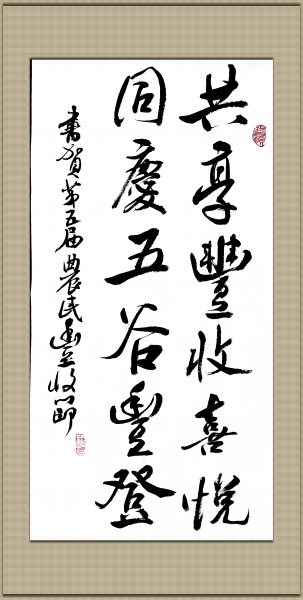 共享豐收喜悅
同慶五谷豐登
書賀第五届農民豐收節